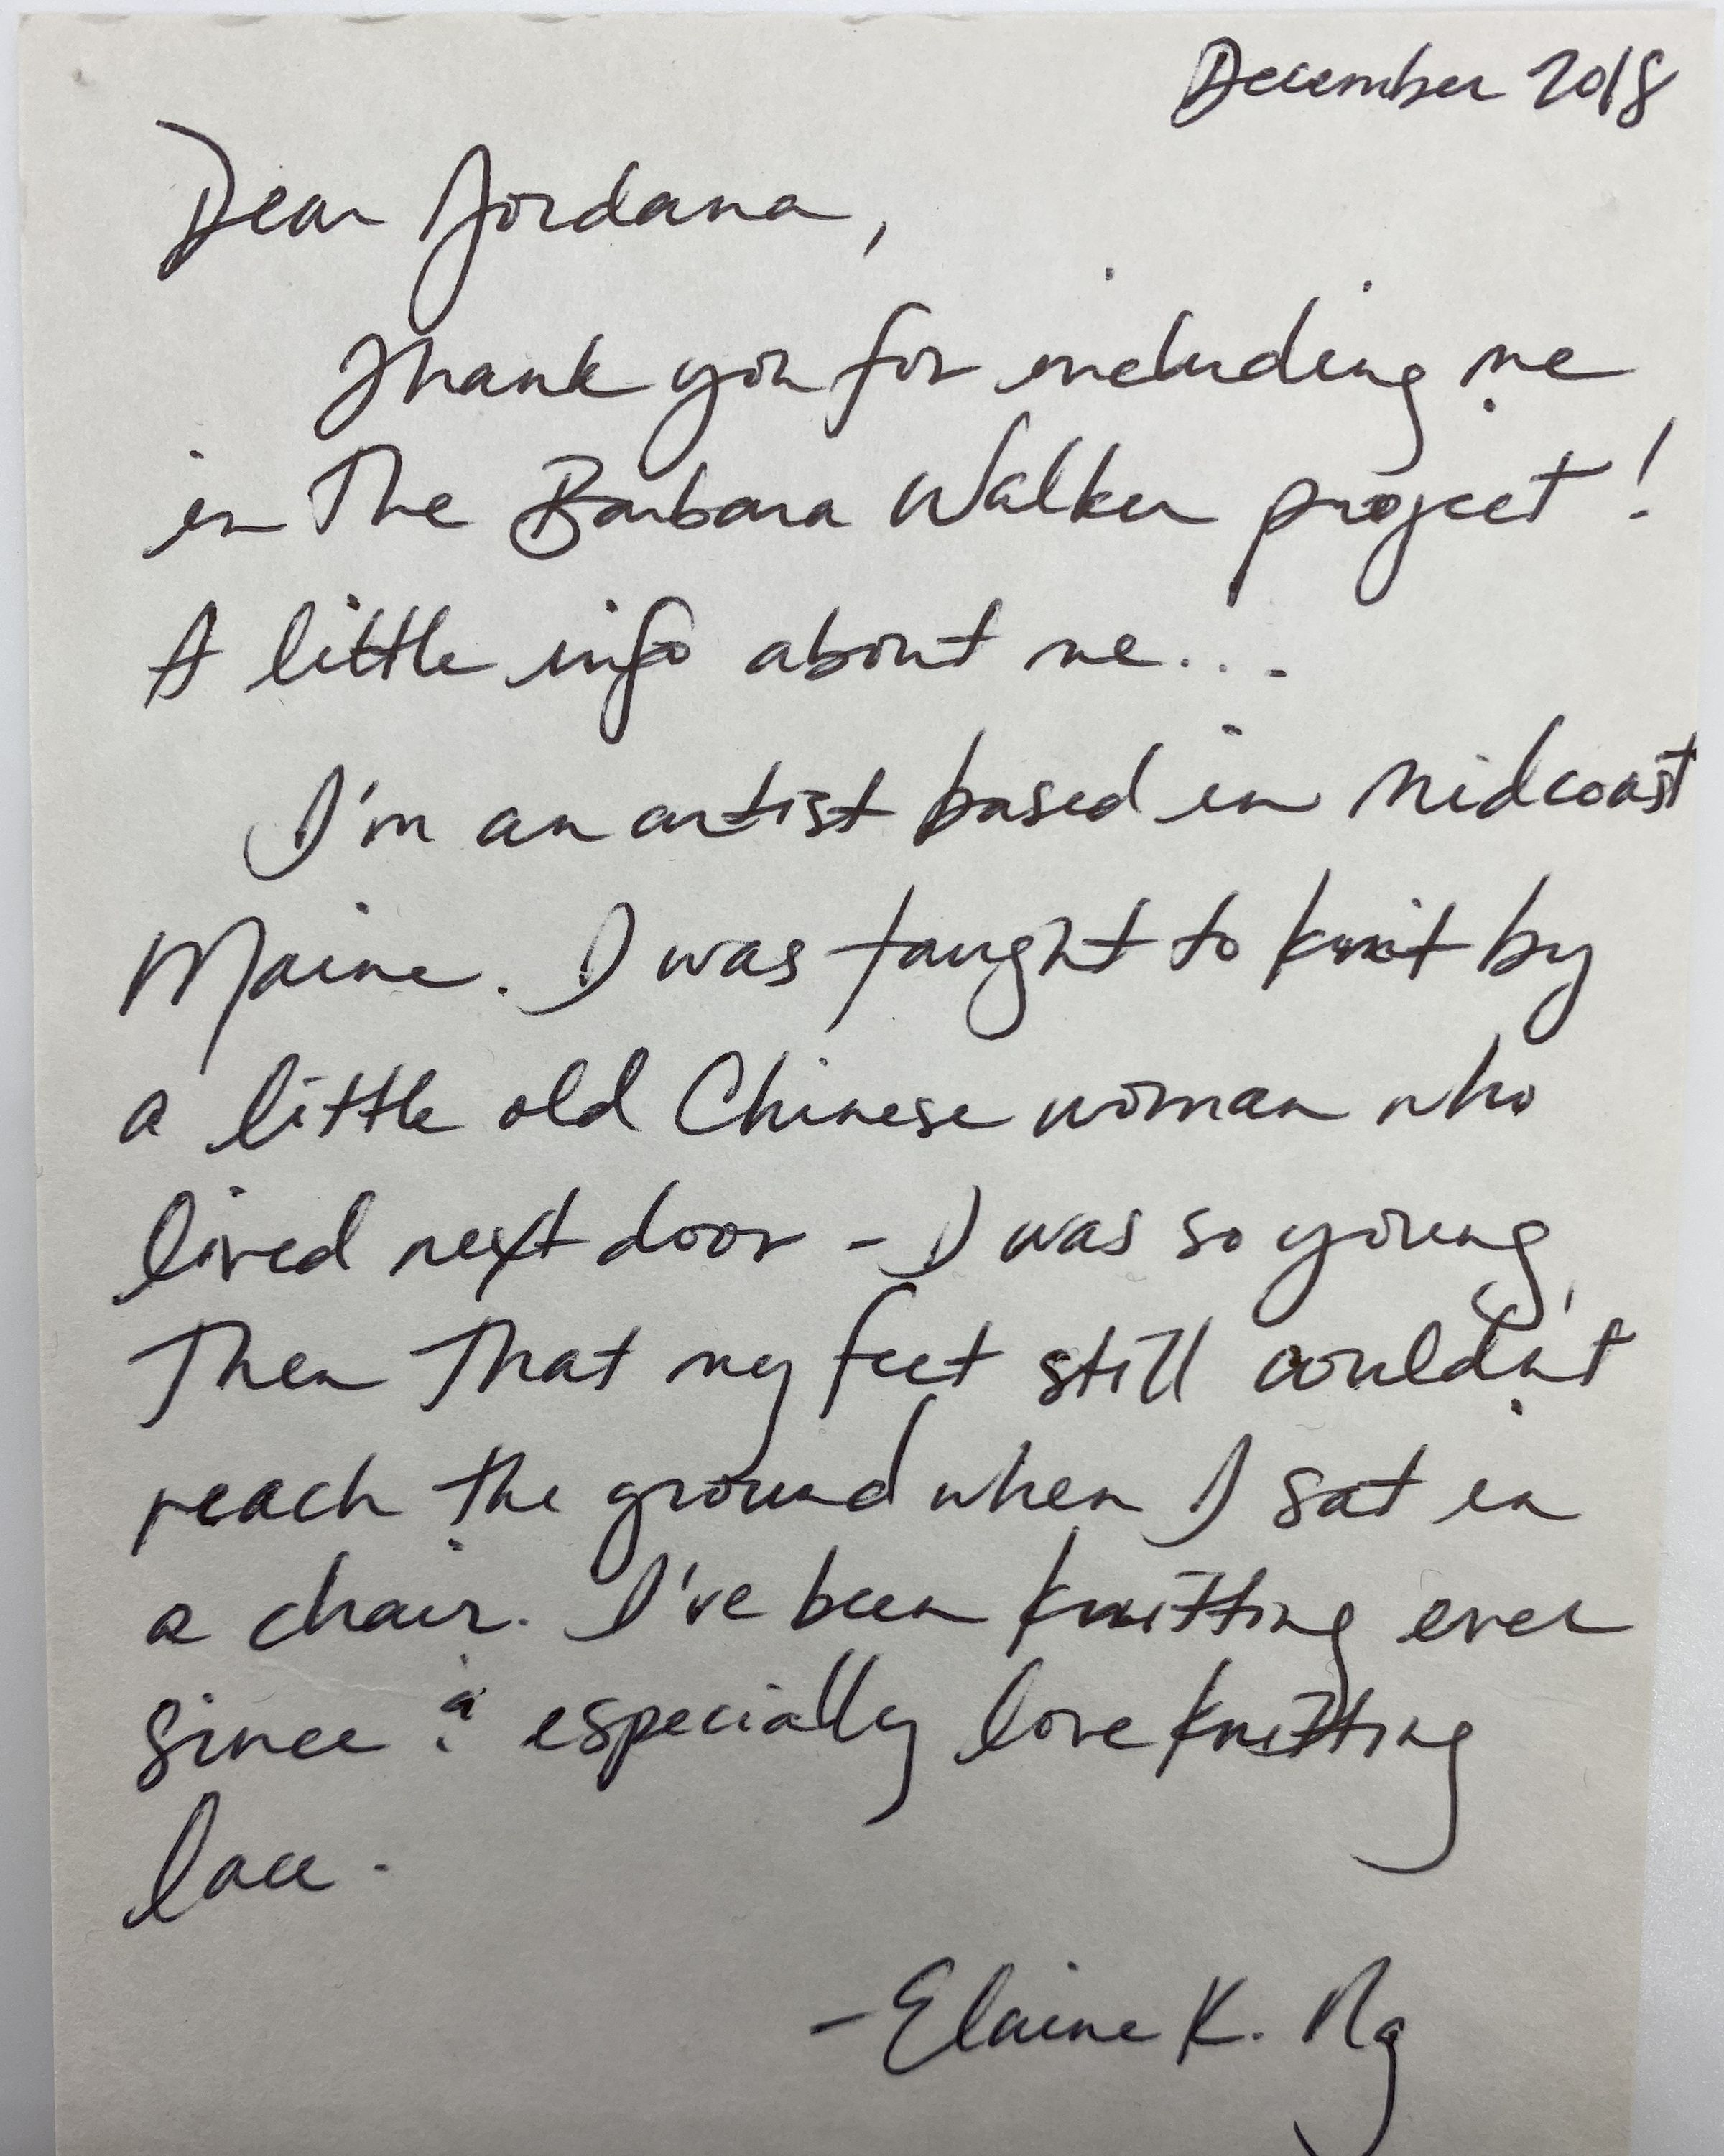 December 2018
Dear Jordana,
Thank you for including me
in the Barbara Walker project!
A little info about me...
I'm an artist based in midcoast
Maine. I was taught to knit by
a little old Chinese woman who
lived next door - I was so young
then that my feet still couldn't
reach the ground when I sat in
a chair. I've been knitting ever
since & especially love knitting
lace.
- Elaine K. Ng